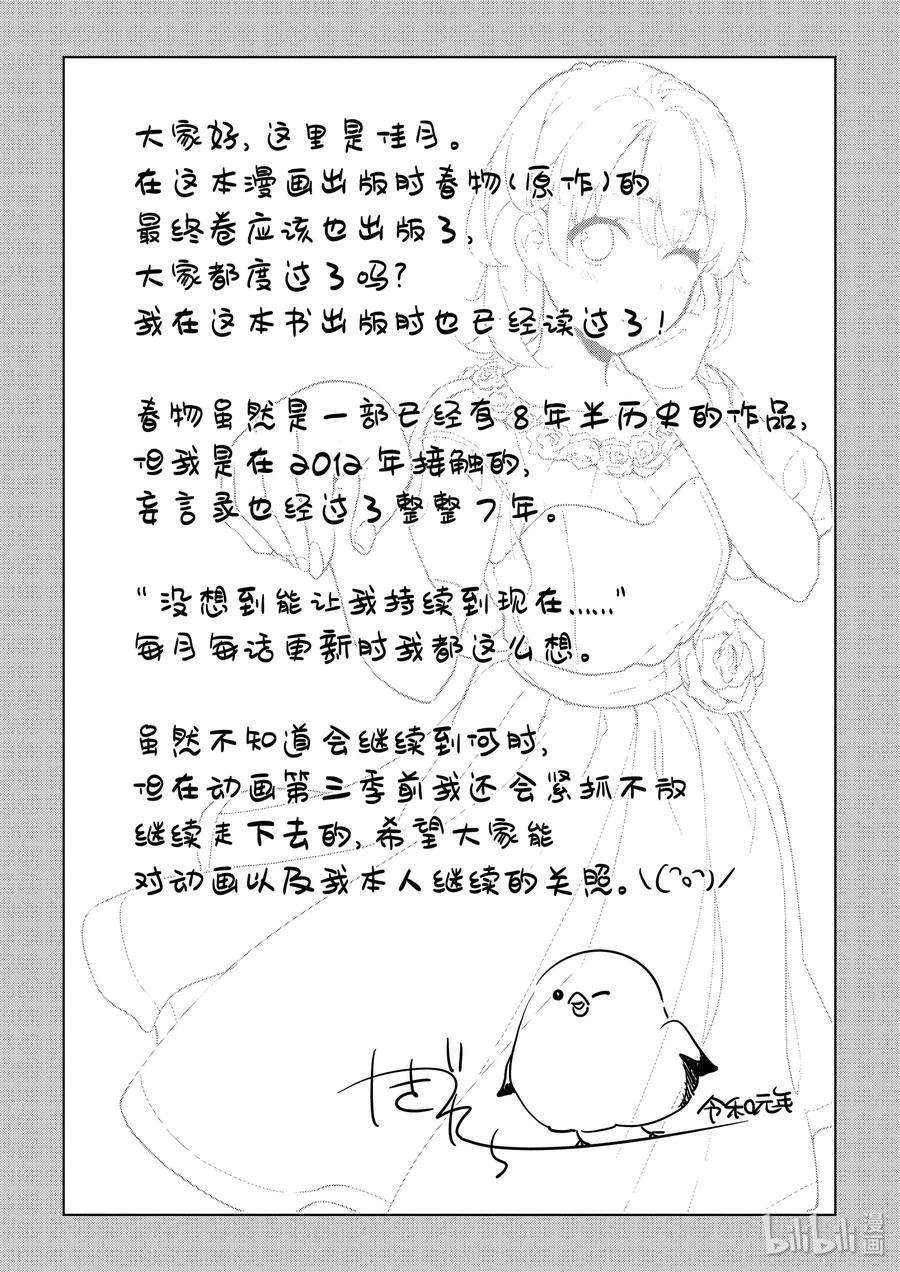 大家好，这里是佳月。
在这本漫画出版时春物（原作）的
最终卷应该也出版了，
大家都度过了吗？
我在这本书出版时也已经读过了！
春物虽然是一部已经有8年半历史的作品，
但我是在2012年接触的，
妄言录也经过了整整7年。
“没想到能让我持续到现在……”
每月每话更新时我都这么想。
虽然不知道会继续到何时，
但在动画第三季前我还会紧抓不放
继续走下去的，希望大家能
对动画以及我本人继续的关照。\(^o^)/
令和元年
bilibili漫画